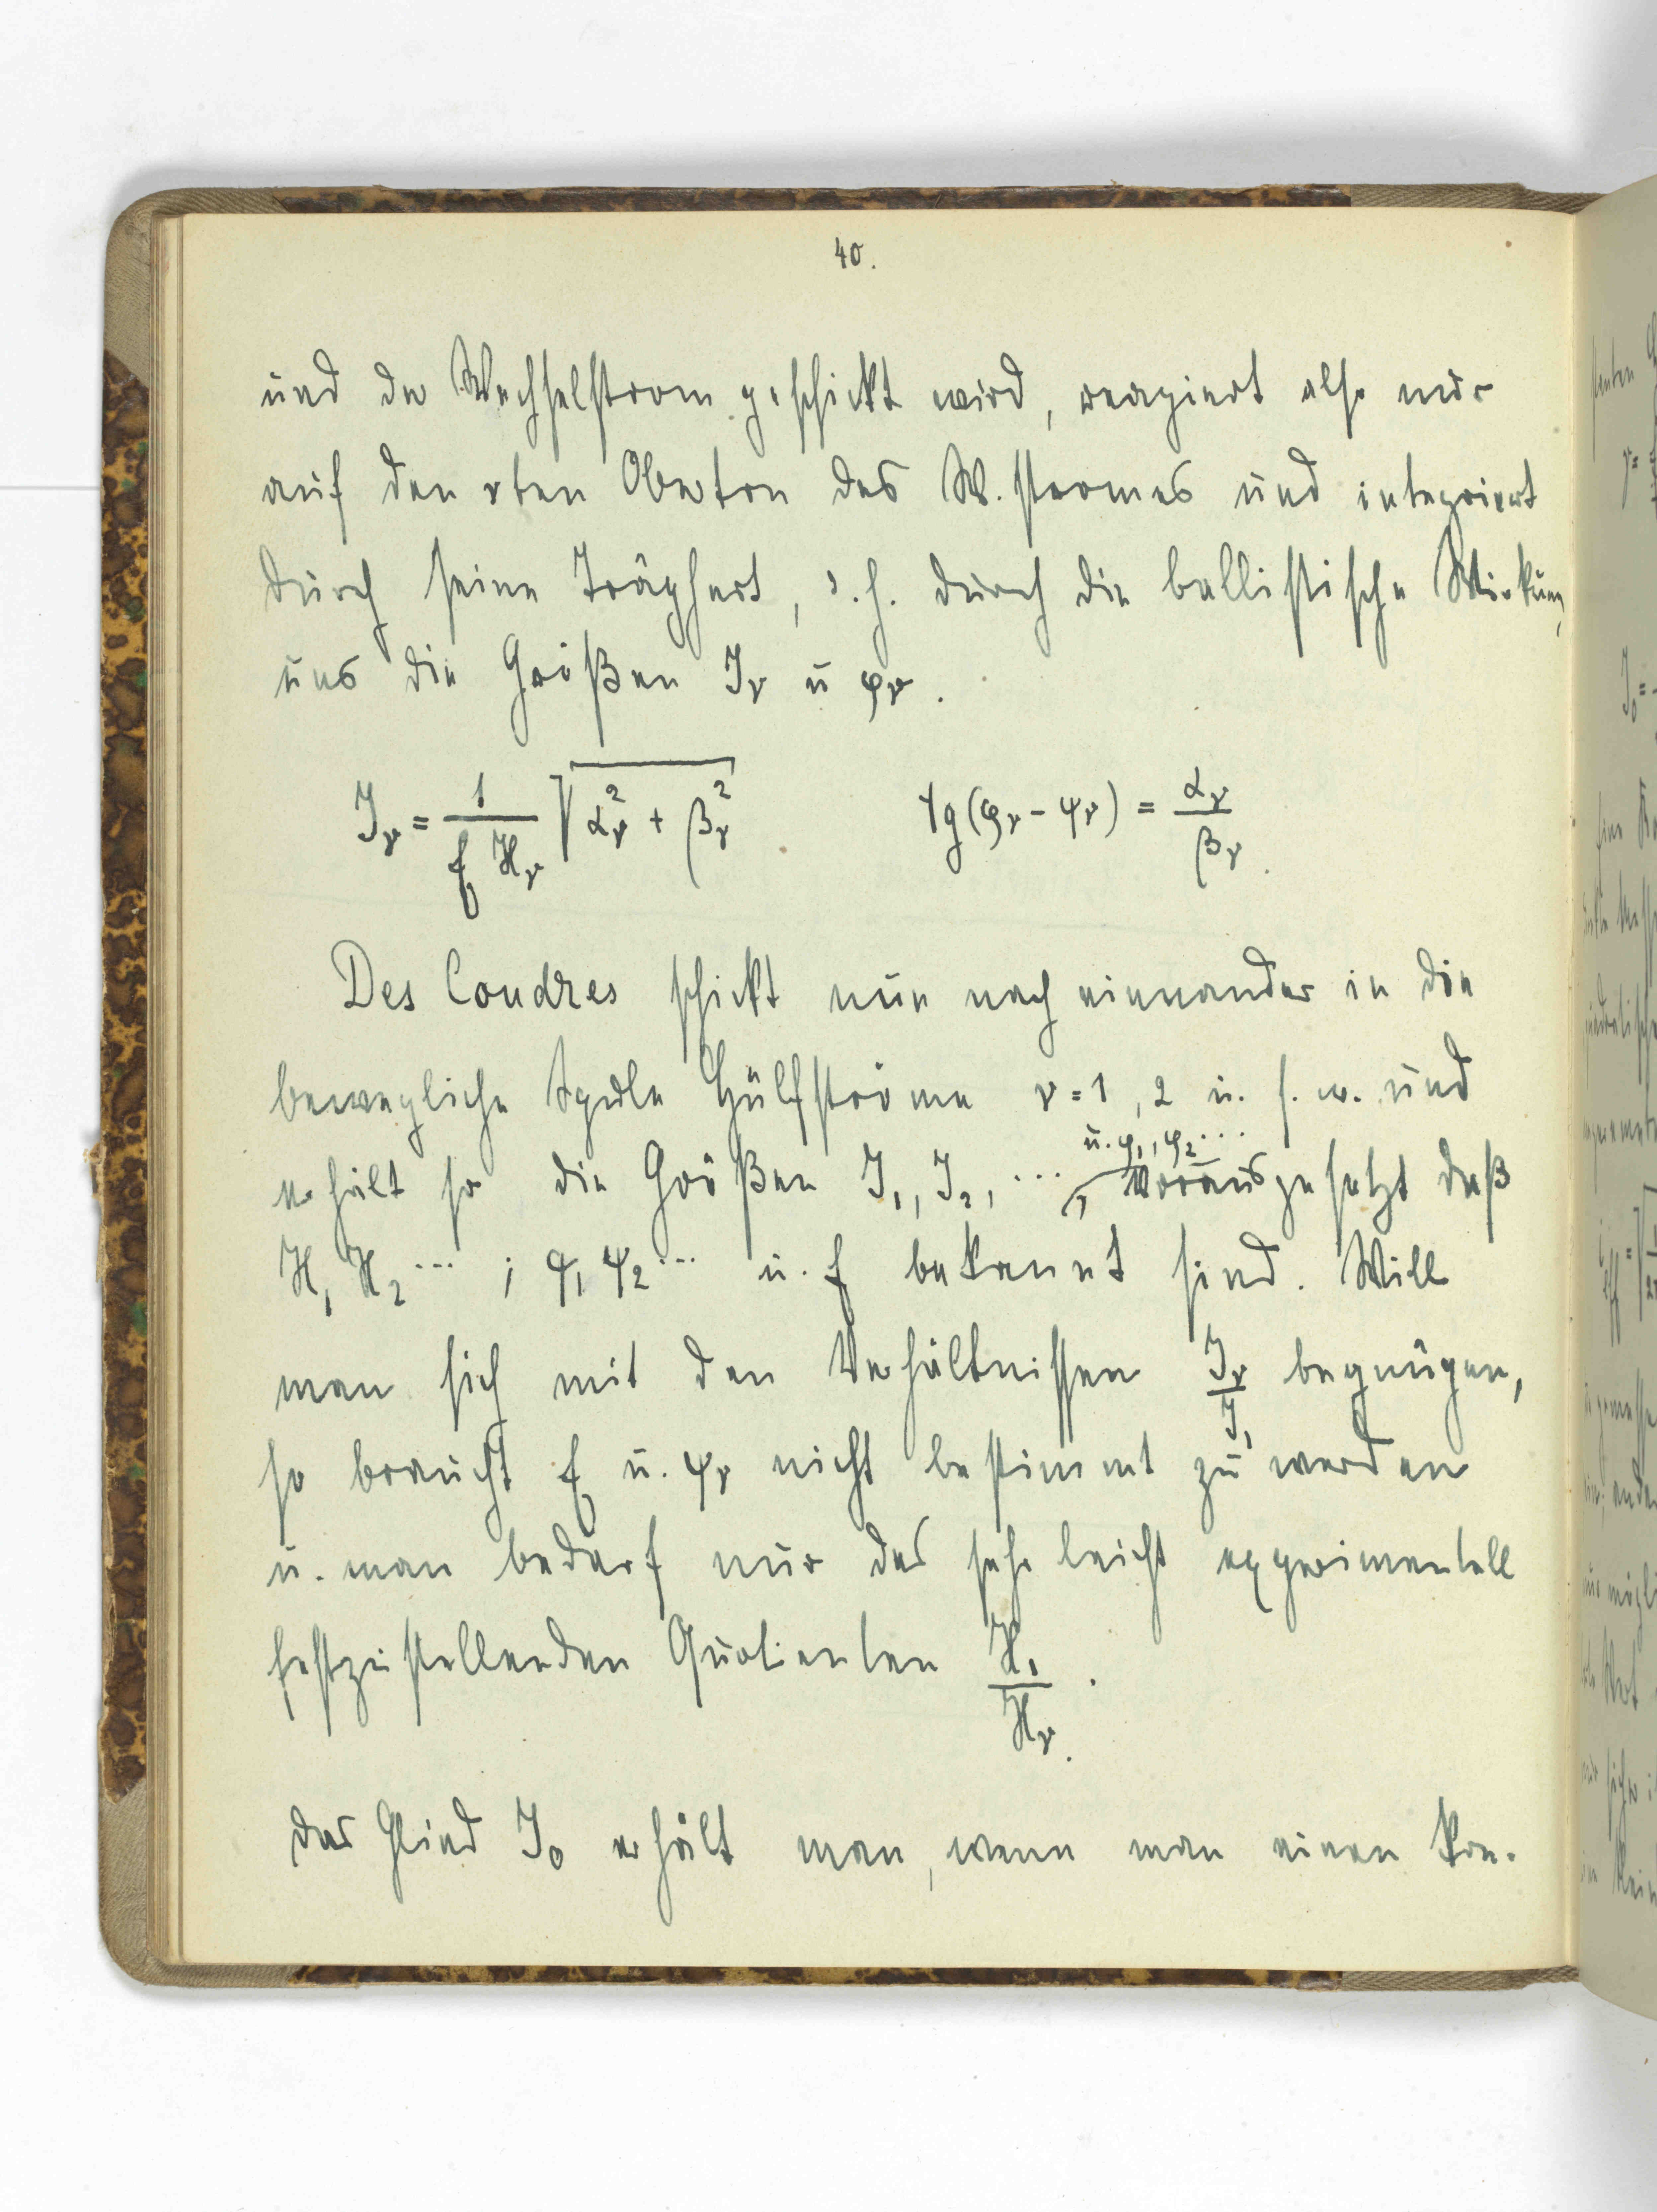 40.
und der Wechselstrom geschickt wird, reagiert also nur
auf den νten Oberton des W.stromes und integriert
durch seine Trägheit, d.h. durch die ballistische Wirkung
uns die Größen J_ν u φ_ν.
J_ν = 1/(f H_ν) √(α_ν² + β_ν²) tg(φ_ν - ψ_ν) = α_ν/β_ν.
Des Coudres schickt nun nach einnander in die
bewegliche Spule Hülfströme ν = 1, 2 u. s. w. und
erhält so die Größen J₁, J₂, ... u. φ₁, φ₂ ... , vorausgesetzt daß
H₁ H₂ ... ; ψ₁ ψ₂ ... u. f bekannt sind. Will
man sich mit den Verhältnissen J_ν/J₁ begnügen,
so braucht f u. ψ_ν nicht bestimmt zu werden
u. man bedarf nur des sehr leicht experimentell
festzustellenden Quotienten H₁/H_ν.
Das Glied J₀ erhält man, wenn man einen kon-